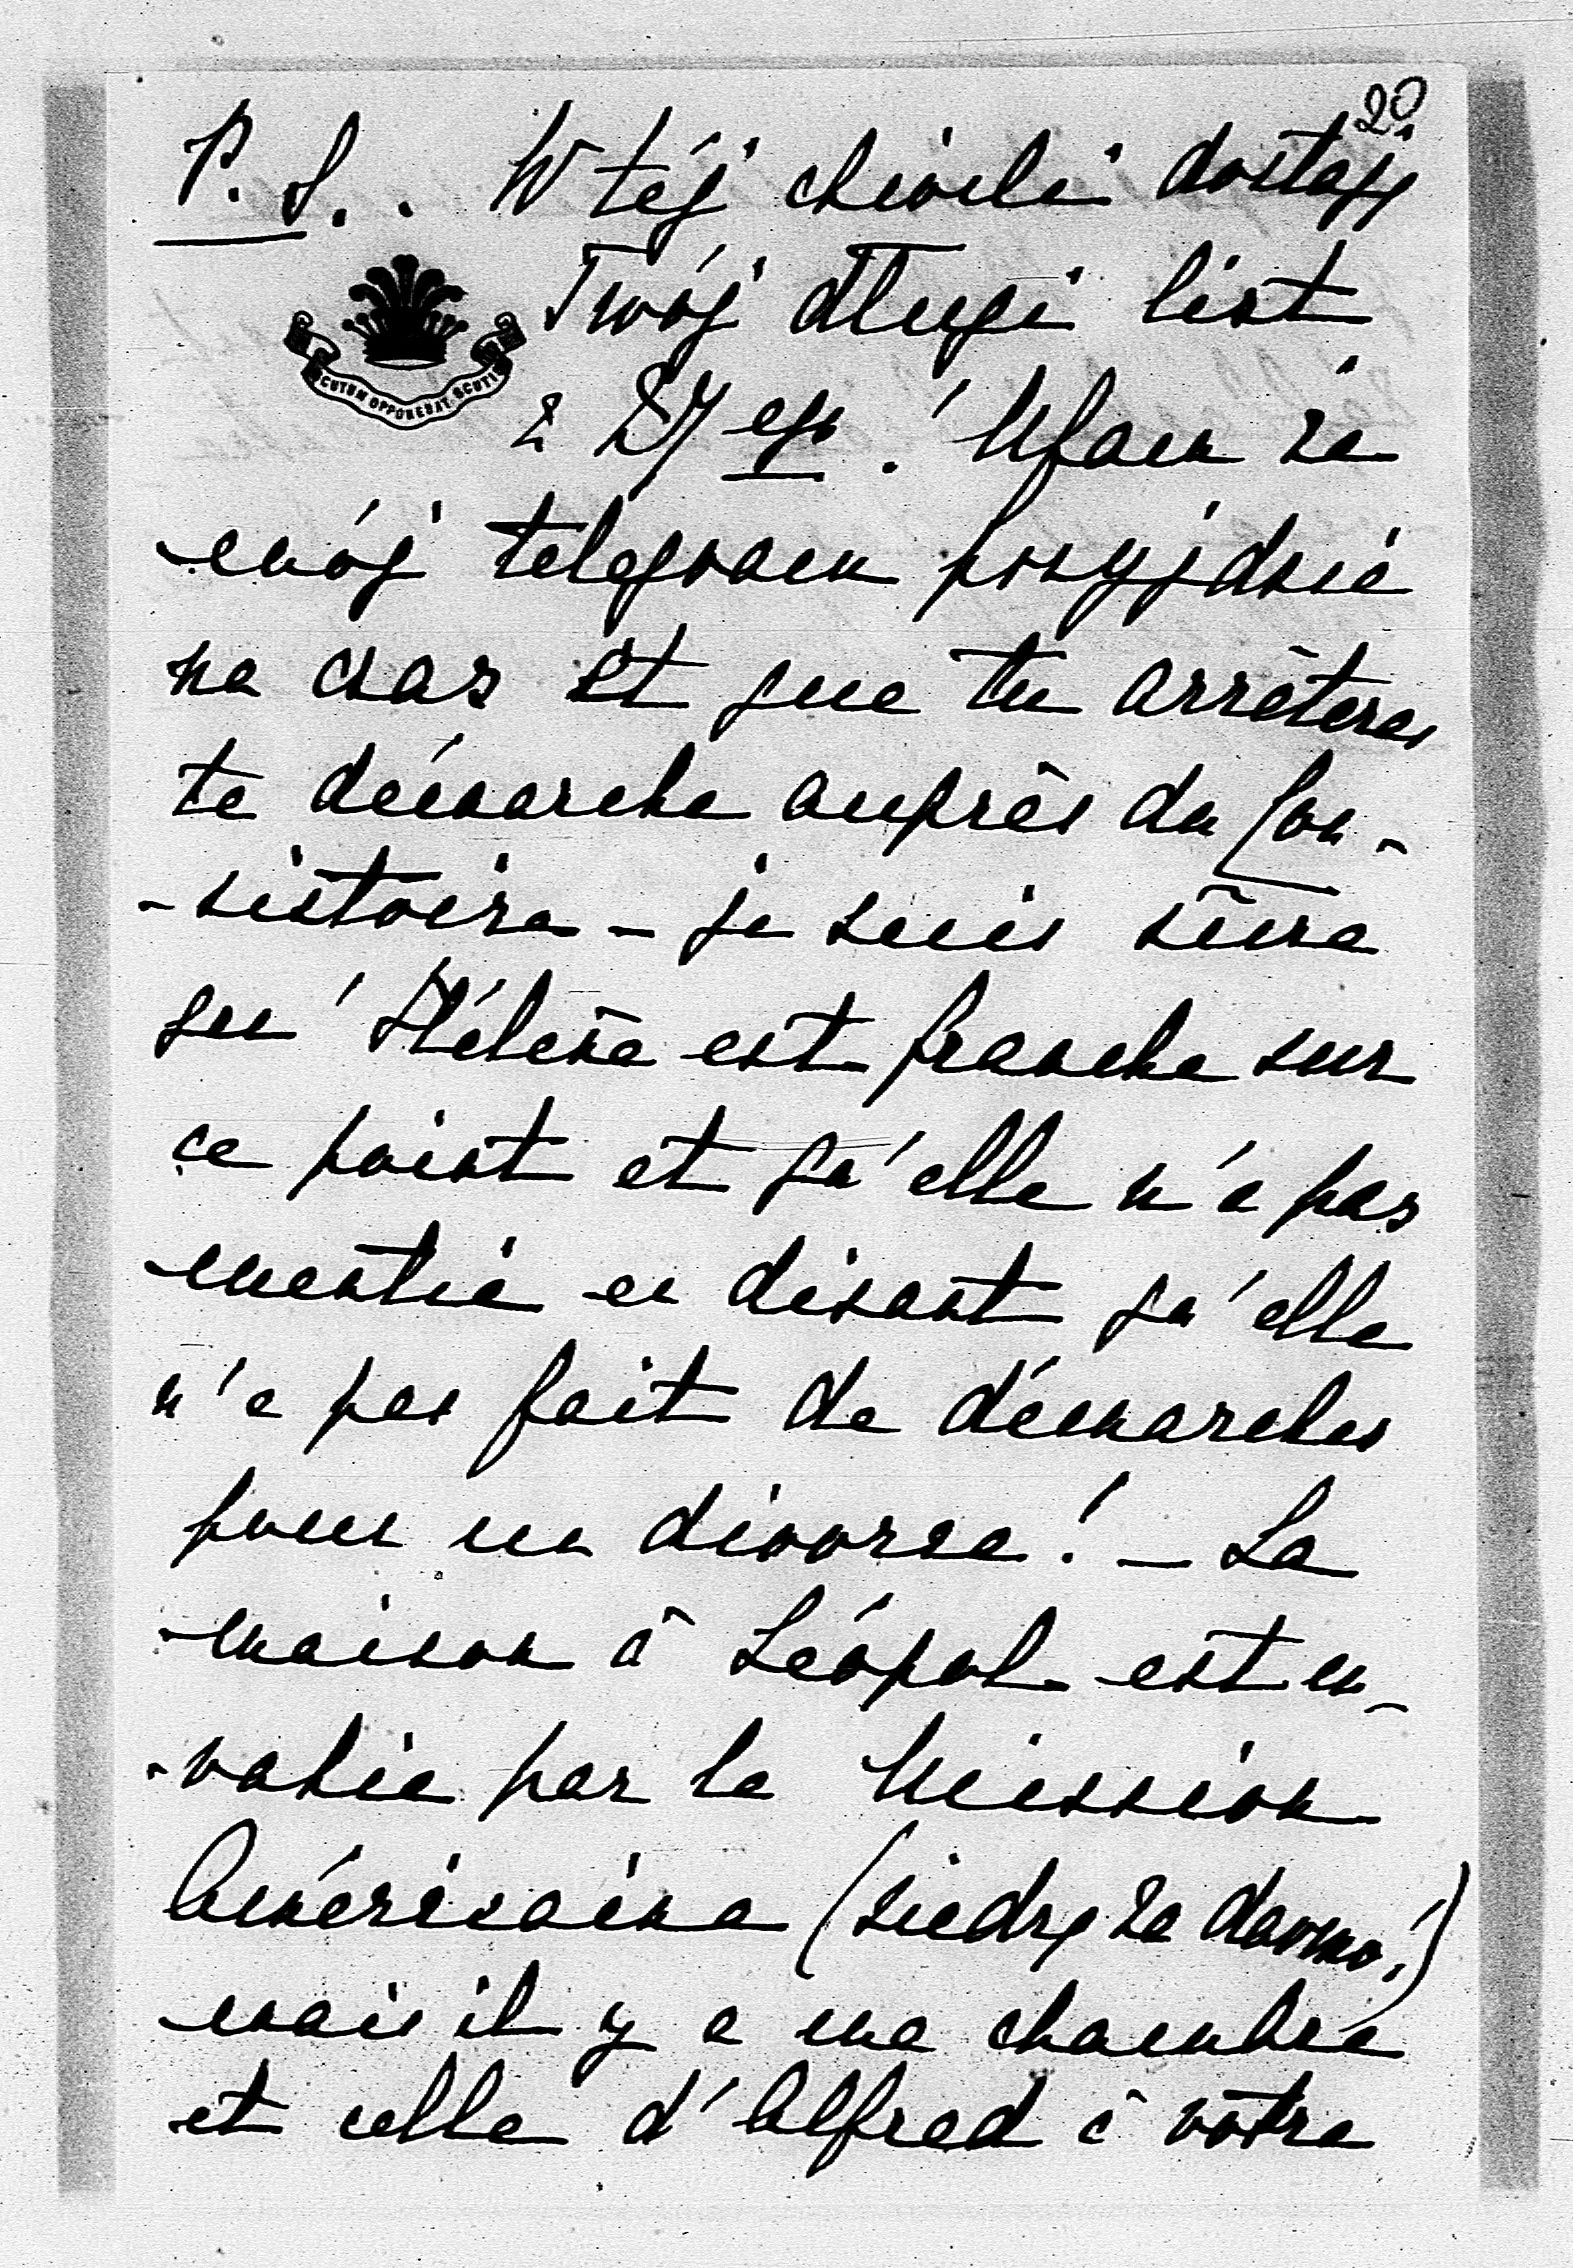 20
P. S.. W téj chwili dostaję
Twój długi list
z 27ego. Ufam że
SCUTUM OPPONEBAT SCUTIS
mój telegram przyjdzie
na czas et que tu arrêteras
ta démarche auprès du Con-
-sistoire - je suis sûre
qu'Hélène est franche sur
ce point et qu'elle n'a pas
mentie en disant qu'elle
n'a pas fait de démarches
pour un divorce! - La
maison à Léopol est en-
-vahie par la Mission
Américaine (siedzą za darmo!)
mais il y a ma chambre
et celle d'Alfred à votre